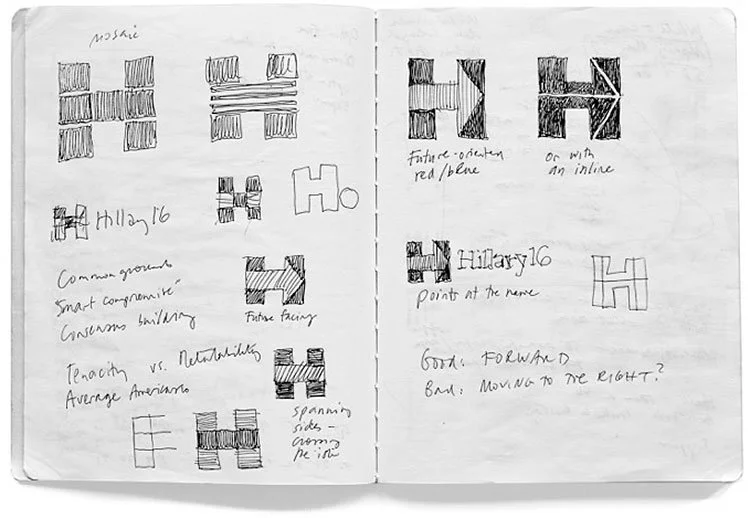 mosaic
Hillary16
Common grounds
"Smart compromise"
Consensus building
Future facing
Tenacity vs. Relatability
Average Americans
spanning
sides –
crossing
the
Future-oriented
red/blue
or with
an inline
Hillary16
points at the name
Good: FORWARD
Bad: MOVING TO THE RIGHT?